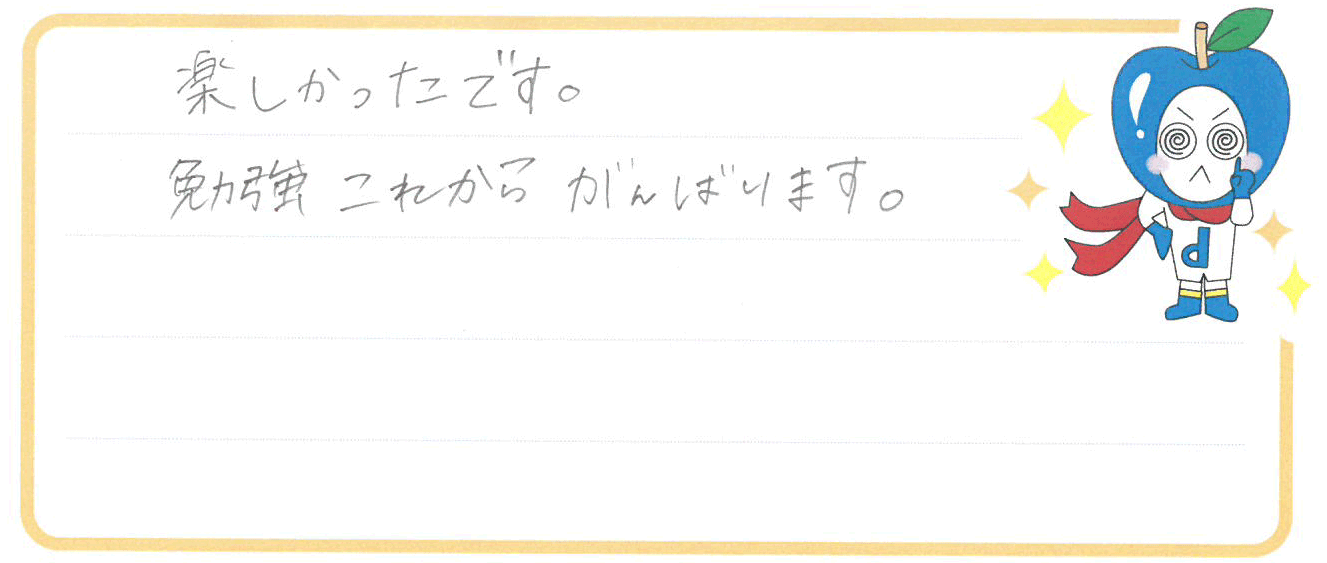 楽しかったです。
勉強 これから がんばります。
d